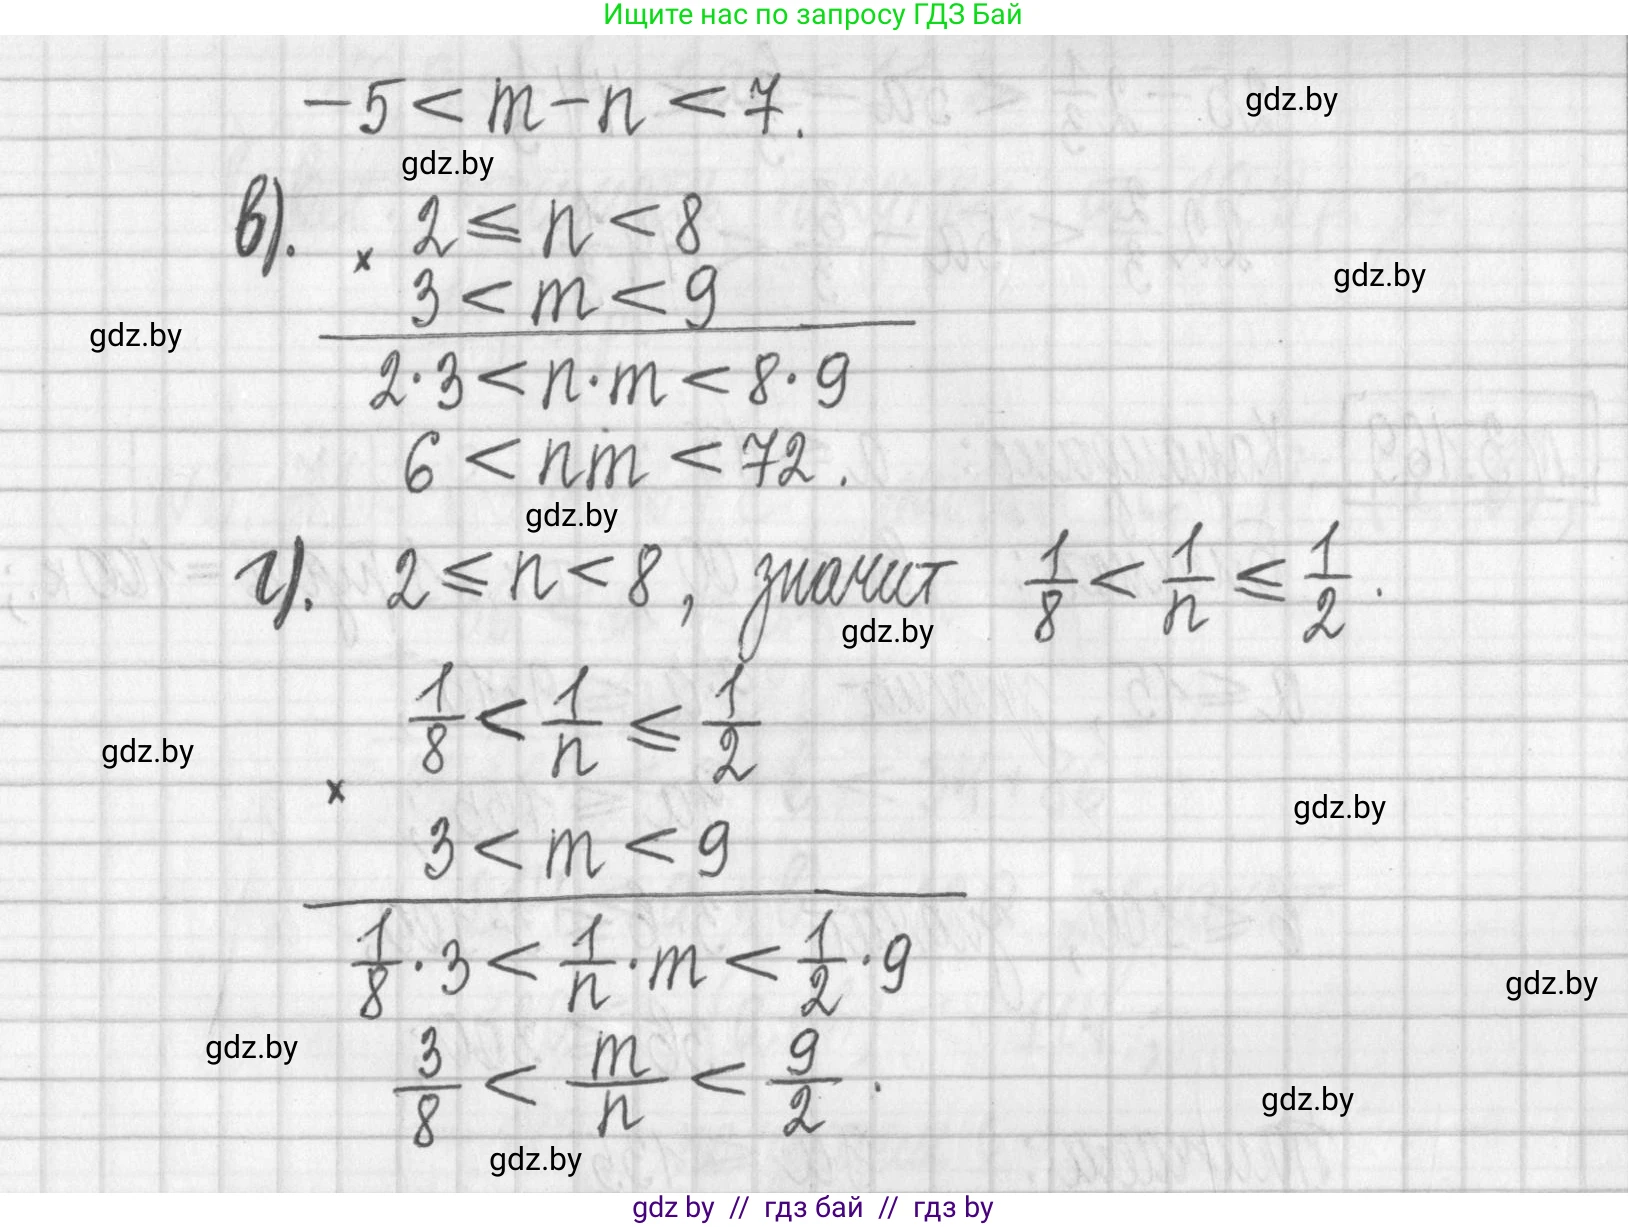 Ищите нас по запросу ГДЗ Бай
-5 < m - n < 7.
gdz.by
gdz.by
в). 2 ≤ n < 8
×
3 < m < 9
gdz.by
gdz.by
2·3 < n·m < 8·9
6 < nm < 72.
gdz.by
г). 2 ≤ n < 8, значит 1/8 < 1/n ≤ 1/2.
gdz.by
1/8 < 1/n ≤ 1/2
gdz.by
×
gdz.by
3 < m < 9
1/8 · 3 < 1/n · m < 1/2 · 9
gdz.by
gdz.by
3/8 < m/n < 9/2.
gdz.by
gdz.by
gdz by // гдз бай // гдз by